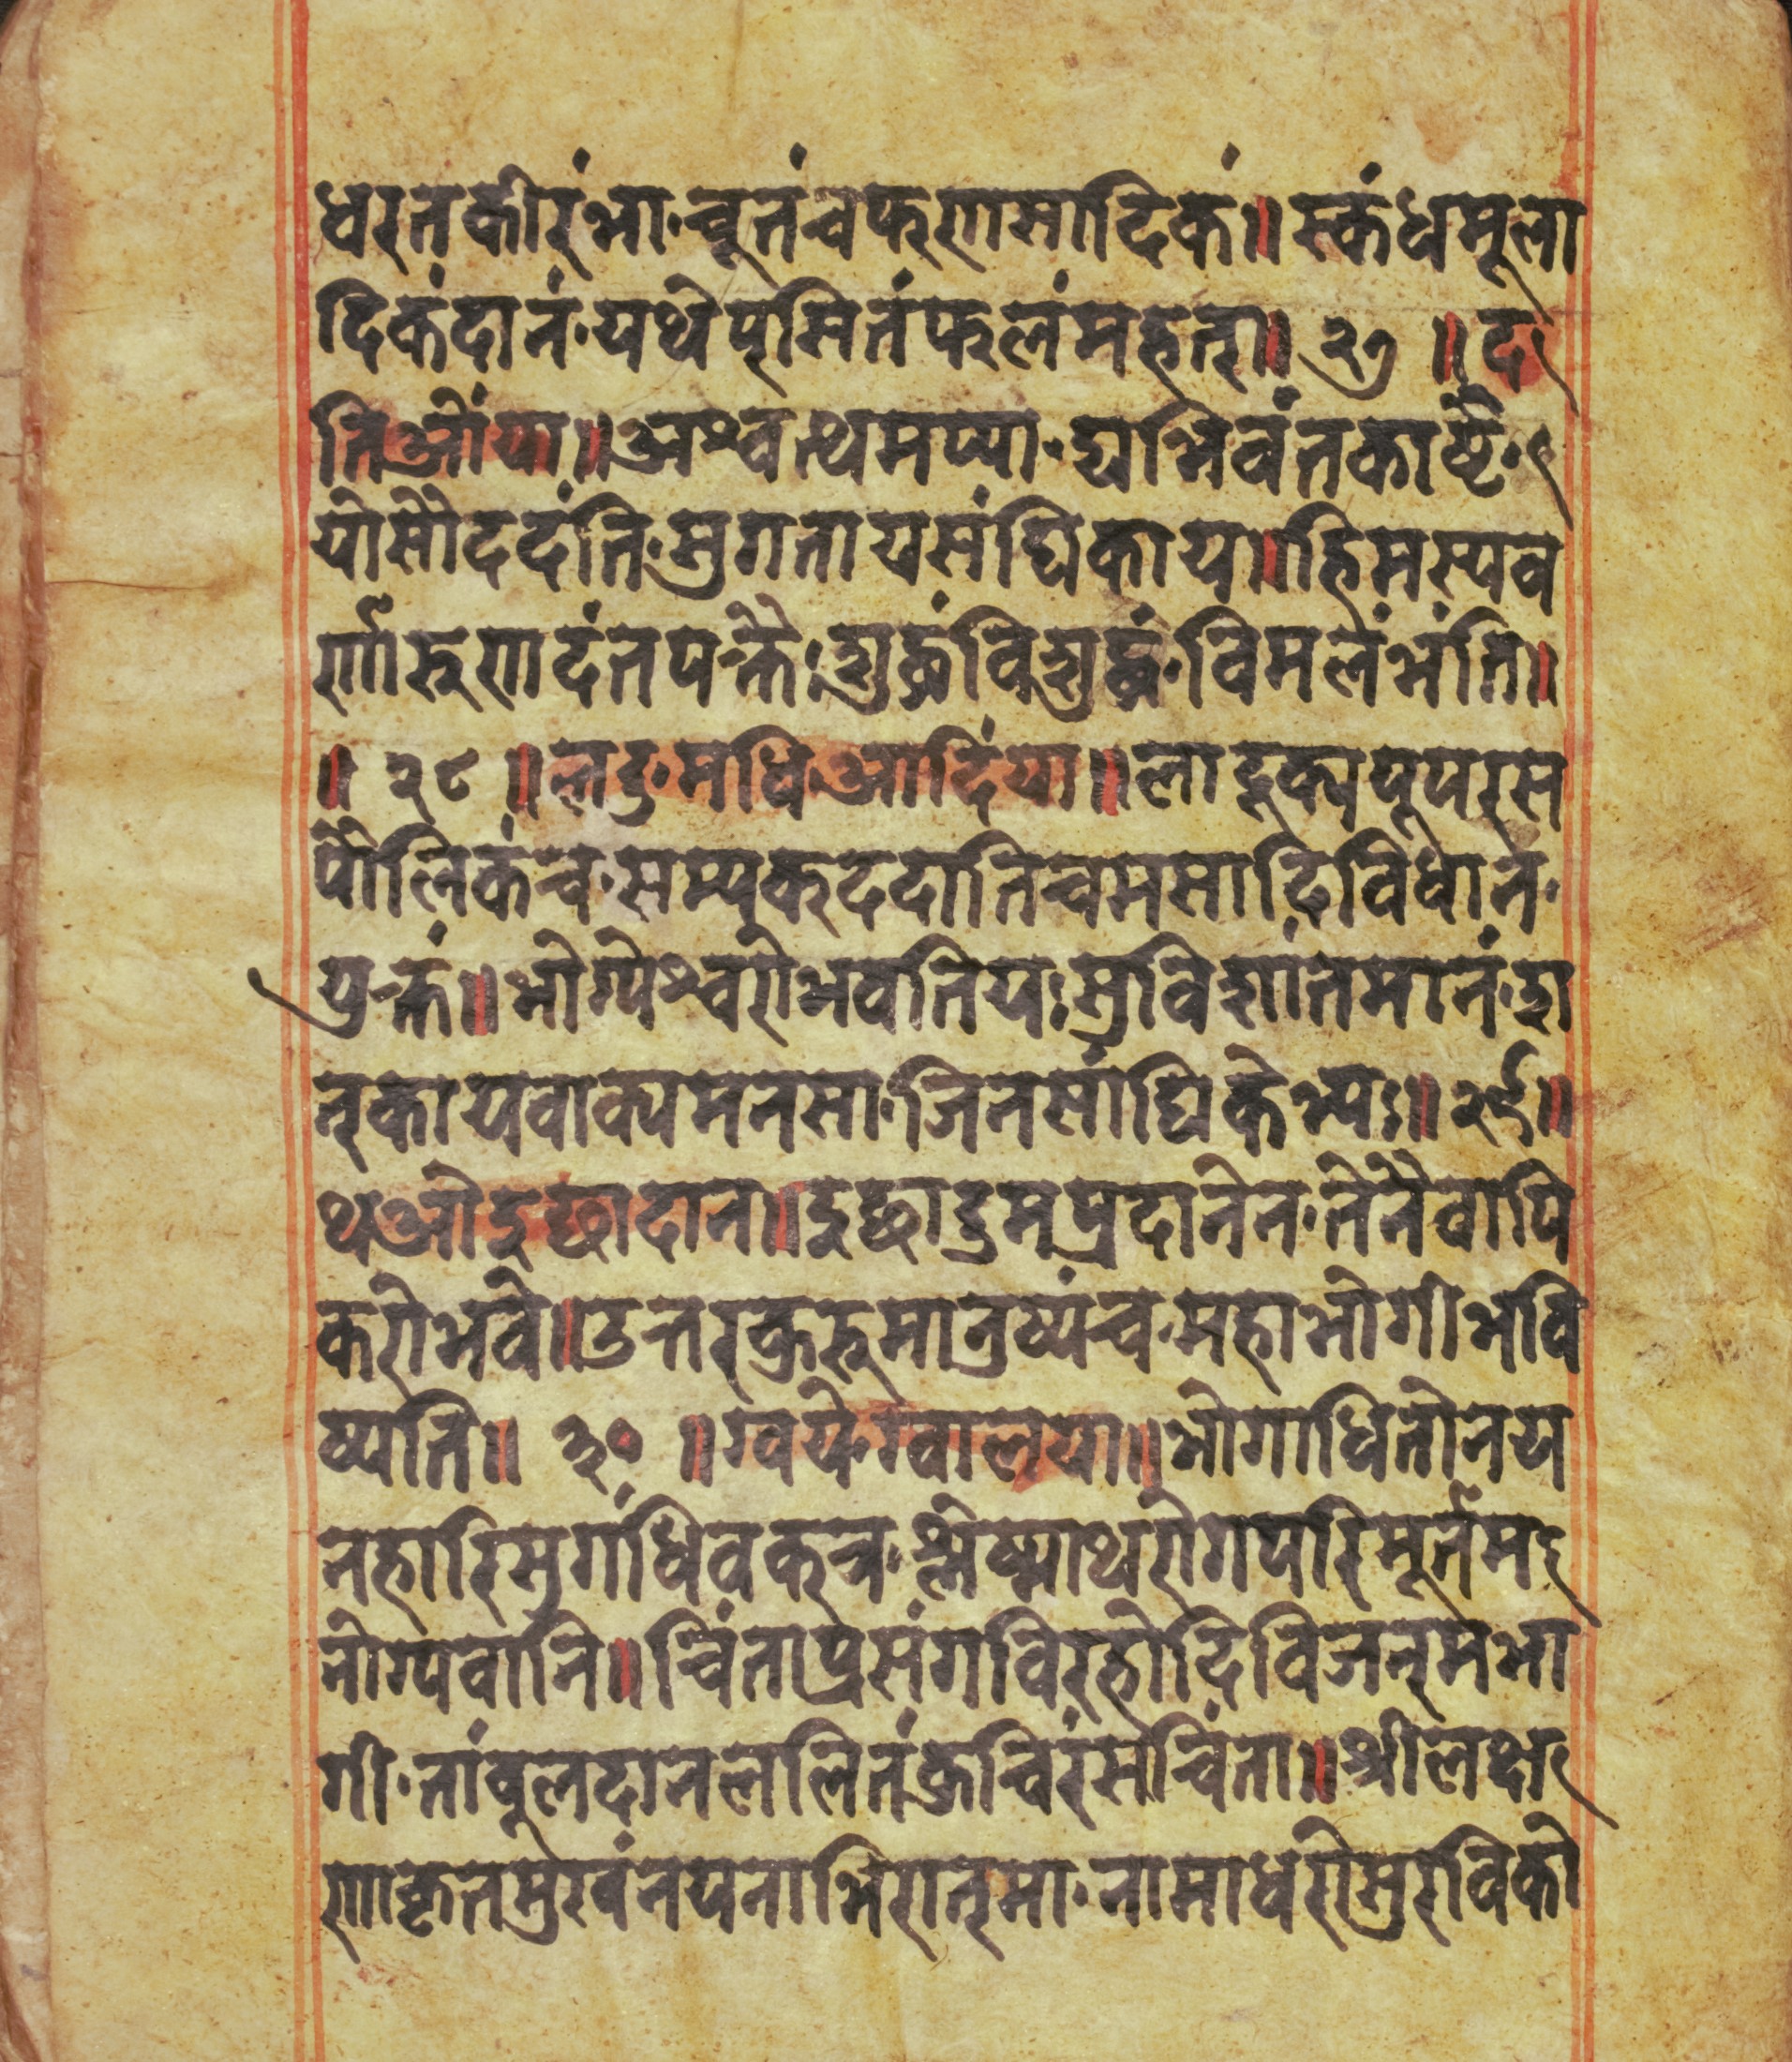 धरतकीरंभा·चूतंचफरणसादिकं॥स्कंधमूला
दिकंदानं·यथेप्मितंफलंमहत्॥२७॥द
तिओंया॥अश्वत्थमप्या·द्यभिवंतकाष्ठै·
योसौददंति·सुगतायसंघिकाय॥हिमस्यव
र्णारुणदंतपंक्तैः·शुद्धंविशुद्धं·विमलंभंति॥
॥२८॥लडु·मधि·आदिंया॥लाडूकपूपरस
पोलिकंच·सम्पकददातिचमसादिविधान·
युक्तं॥भोग्येश्वरोभवतियः·सुविशांतमानं·दा
न्कायवाक्यमनसा·जिनसांघिकेभ्यः॥२९॥
थओदुछादान॥दुछाद्रुमप्रदानेन·तेनैवापि
करोभवे॥उत्तरकुरुमानुष्यंच·महाभोगीभवि
ष्यति॥३०॥ग्वयेग्वालया॥भोगाधितोनय
नहारिसुगंधिवकत्र·श्लेष्माथरोगपरिमूर्तम
नोग्यवानि॥चिंताप्रसंगविरहोदिविजन्मभा
गी·तांबुलदानललितंक्रचिरंसचिंता॥श्रीलक्ष
णाकृतमुखंनयनाभिरात्मा·नामाधरोसुरविको